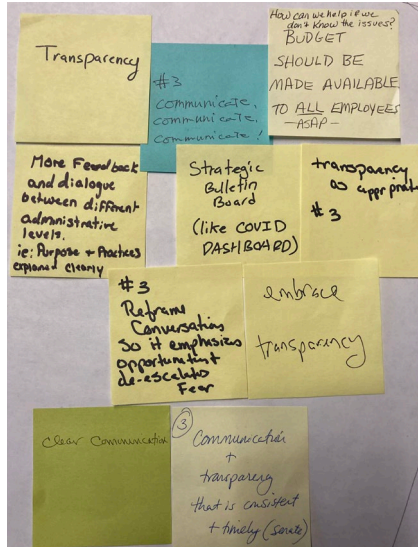 Transparency
#3
communicate,
communicate,
communicate!
How can we help if we
don't know the issues?
BUDGET
SHOULD BE
MADE AVAILABLE
TO ALL EMPLOYEES
-ASAP-
More Feedback
and dialogue
between different
administrative
levels.
ie: Purpose + Practices
explained clearly
Strategic
Bulletin
Board
(like COVID
DASHBOARD)
transparency
as
#3
#3
Reframe
Conversation
so it emphasizes
de-escalates
Fear
embrace
transparency
Clear Communication
3
Communication
+
transparency
that is consistent
+ timely (senate)